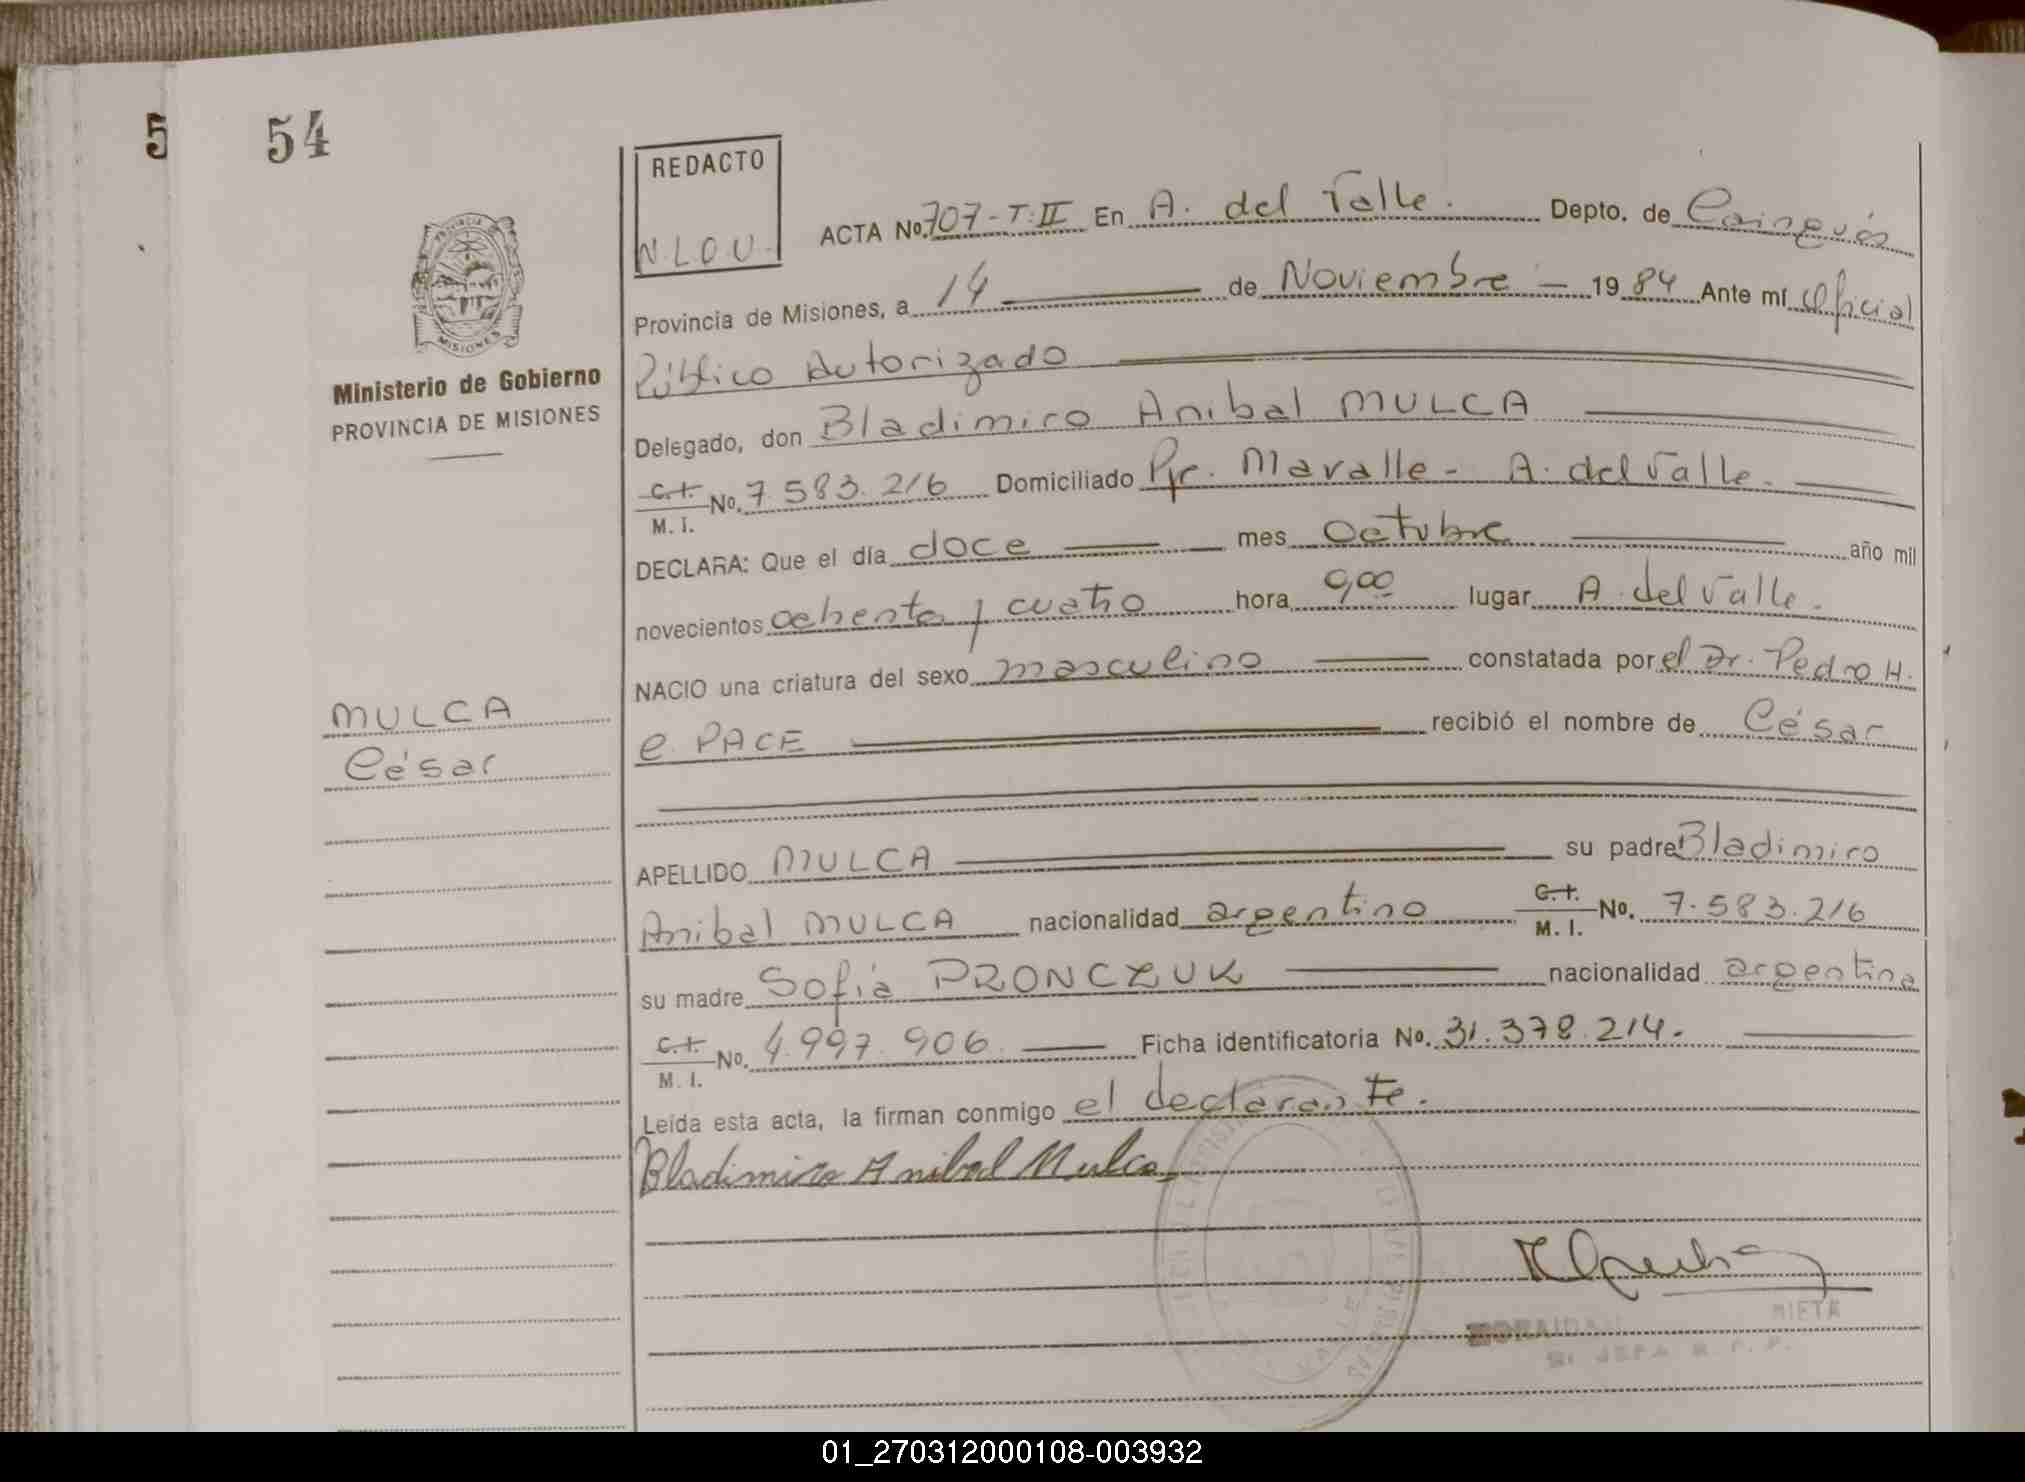 5
54
REDACTO
N.L.O.U.
ACTA No. 707-T:II En A. del Valle. Depto. de Cainguás
Provincia de Misiones, a 14 de Noviembre - 1984 Ante mí Oficial
Público Autorizado
Delegado, don Bladimiro Anibal MULCA
C.I. M. I. No. 7.583.216 Domiciliado Pje. Mavalle - A. del Valle.
DECLARA: Que el día doce mes octubre año mil
novecientos ochenta y cuatro hora 9,00 lugar A. del Valle.
NACIO una criatura del sexo masculino constatada por el Dr. Pedro H.
e. PACE recibió el nombre de César
APELLIDO MULCA su padre Bladimiro
Anibal MULCA nacionalidad argentino C.I. M. I. No. 7.583.216
su madre Sofia PRONCZUK nacionalidad argentina
C.I. M. I. No. 4.997.906 Ficha identificatoria No. 31.378.214.
Leída esta acta, la firman conmigo el declarante.
Bladimiro Anibal Mulca
PROVINCIA
MISIONES
Ministerio de Gobierno
PROVINCIA DE MISIONES
MULCA
César
VALLE
01_270312000108-003932